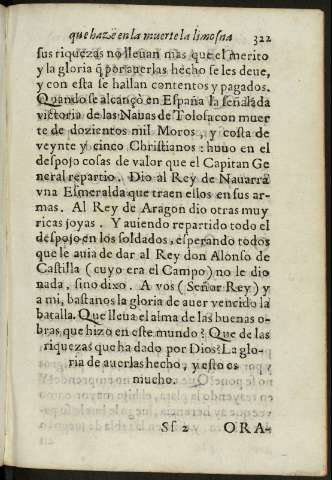 que hazẽ en la muerte la limosna 322
sus riquezas no lleuan mas que el merito
y la gloria q̃ por auerlas hecho se les deue,
y con esta se hallan contentos y pagados.
Quando se alcançò en España la señalada
victoria de las Nauas de Tolosa con muer
te de dozientos mil Moros, y costa de
veynte y cinco Christianos: huuo en el
despojo cosas de valor que el Capitan Ge
neral repartio. Dio al Rey de Nauarra
vna Esmeralda que traen ellos en sus ar-
mas. Al Rey de Aragon dio otras muy
ricas joyas. Y auiendo repartido todo el
despojo en los soldados, esperando todos
que le auia de dar al Rey don Alonso de
Castilla (cuyo era el Campo) no le dio
nada, sino dixo. A vos (Señor Rey) y
a mi, bastanos la gloria de auer vencido la
batalla. Que lleua el alma de las buenas o-
bras que hizo en este mundo? Que de las
riquezas que ha dado por Dios? La glo-
ria de auerlas hecho, y esto es
mucho.
Sf 2 ORA-